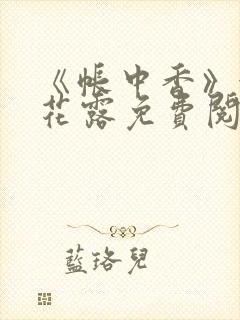 《帳中香》
花露免費閱
藍珞兒